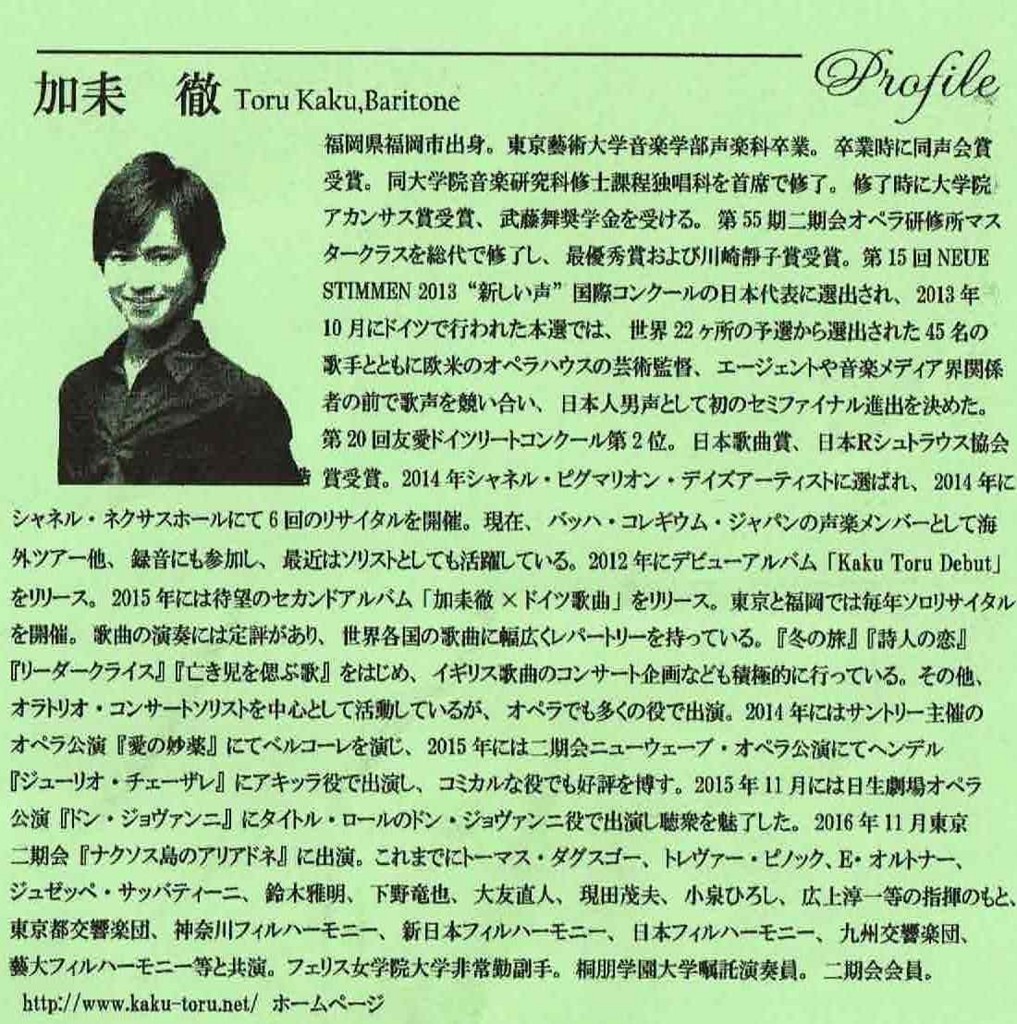 Profile
加耒 徹 Toru Kaku,Baritone
福岡県福岡市出身。東京藝術大学音楽学部声楽科卒業。卒業時に同声会賞
受賞。同大学院音楽研究科修士課程独唱科を首席で修了。修了時に大学院
アカンサス賞受賞、武藤舞奨学金を受ける。第55期二期会オペラ研修所マス
タークラスを総代で修了し、最優秀賞および川崎靜子賞受賞。第15回NEUE
STIMMEN 2013 “新しい声” 国際コンクールの日本代表に選出され、2013年
10月にドイツで行われた本選では、世界22ヶ所の予選から選出された45名の
歌手とともに欧米のオペラハウスの芸術監督、エージェントや音楽メディア界関係
者の前で歌声を競い合い、日本人男声として初のセミファイナル進出を決めた。
第20回友愛ドイツリートコンクール第2位。日本歌曲賞、日本Rシュトラウス協会
賞受賞。2014年シャネル・ピグマリオン・デイズアーティストに選ばれ、2014年に
シャネル・ネクサスホールにて6回のリサイタルを開催。現在、バッハ・コレギウム・ジャパンの声楽メンバーとして海
外ツアー他、録音にも参加し、最近はソリストとしても活躍している。2012年にデビューアルバム「Kaku Toru Debut」
をリリース。2015年には待望のセカンドアルバム「加耒徹 × ドイツ歌曲」をリリース。東京と福岡では毎年ソロリサイタル
を開催。歌曲の演奏には定評があり、世界各国の歌曲に幅広くレパートリーを持っている。『冬の旅』『詩人の恋』
『リーダークライス』『亡き児を偲ぶ歌』をはじめ、イギリス歌曲のコンサート企画なども積極的に行っている。その他、
オラトリオ・コンサートソリストを中心として活動しているが、オペラでも多くの役で出演。2014年にはサントリー主催の
オペラ公演『愛の妙薬』にてベルコーレを演じ、2015年には二期会ニューウェーブ・オペラ公演にてヘンデル
『ジューリオ・チェーザレ』にアキッラ役で出演し、コミカルな役でも好評を博す。2015年11月には日生劇場オペラ
公演『ドン・ジョヴァンニ』にタイトル・ロールのドン・ジョヴァンニ役で出演し聴衆を魅了した。2016年11月東京
二期会『ナクソス島のアリアドネ』に出演。これまでにトーマス・ダグスゴー、トレヴァー・ピノック、E・オルトナー、
ジュゼッペ・サッバティーニ、鈴木雅明、下野竜也、大友直人、現田茂夫、小泉ひろし、広上淳一等の指揮のもと、
東京都交響楽団、神奈川フィルハーモニー、新日本フィルハーモニー、日本フィルハーモニー、九州交響楽団、
藝大フィルハーモニー等と共演。フェリス女学院大学非常勤副手。桐朋学園大学嘱託演奏員。二期会会員。
http://www.kaku-toru.net/ ホームページ